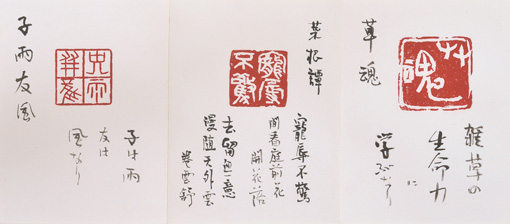 草魂
艸魂
雑草の
生命力に
学びなり
菜根譚
寵辱不驚
寵辱不驚
閑看庭前花
開花落
去留無意
漫随天外雲
巻雲舒
子雨友風
子は雨
友は
風なり